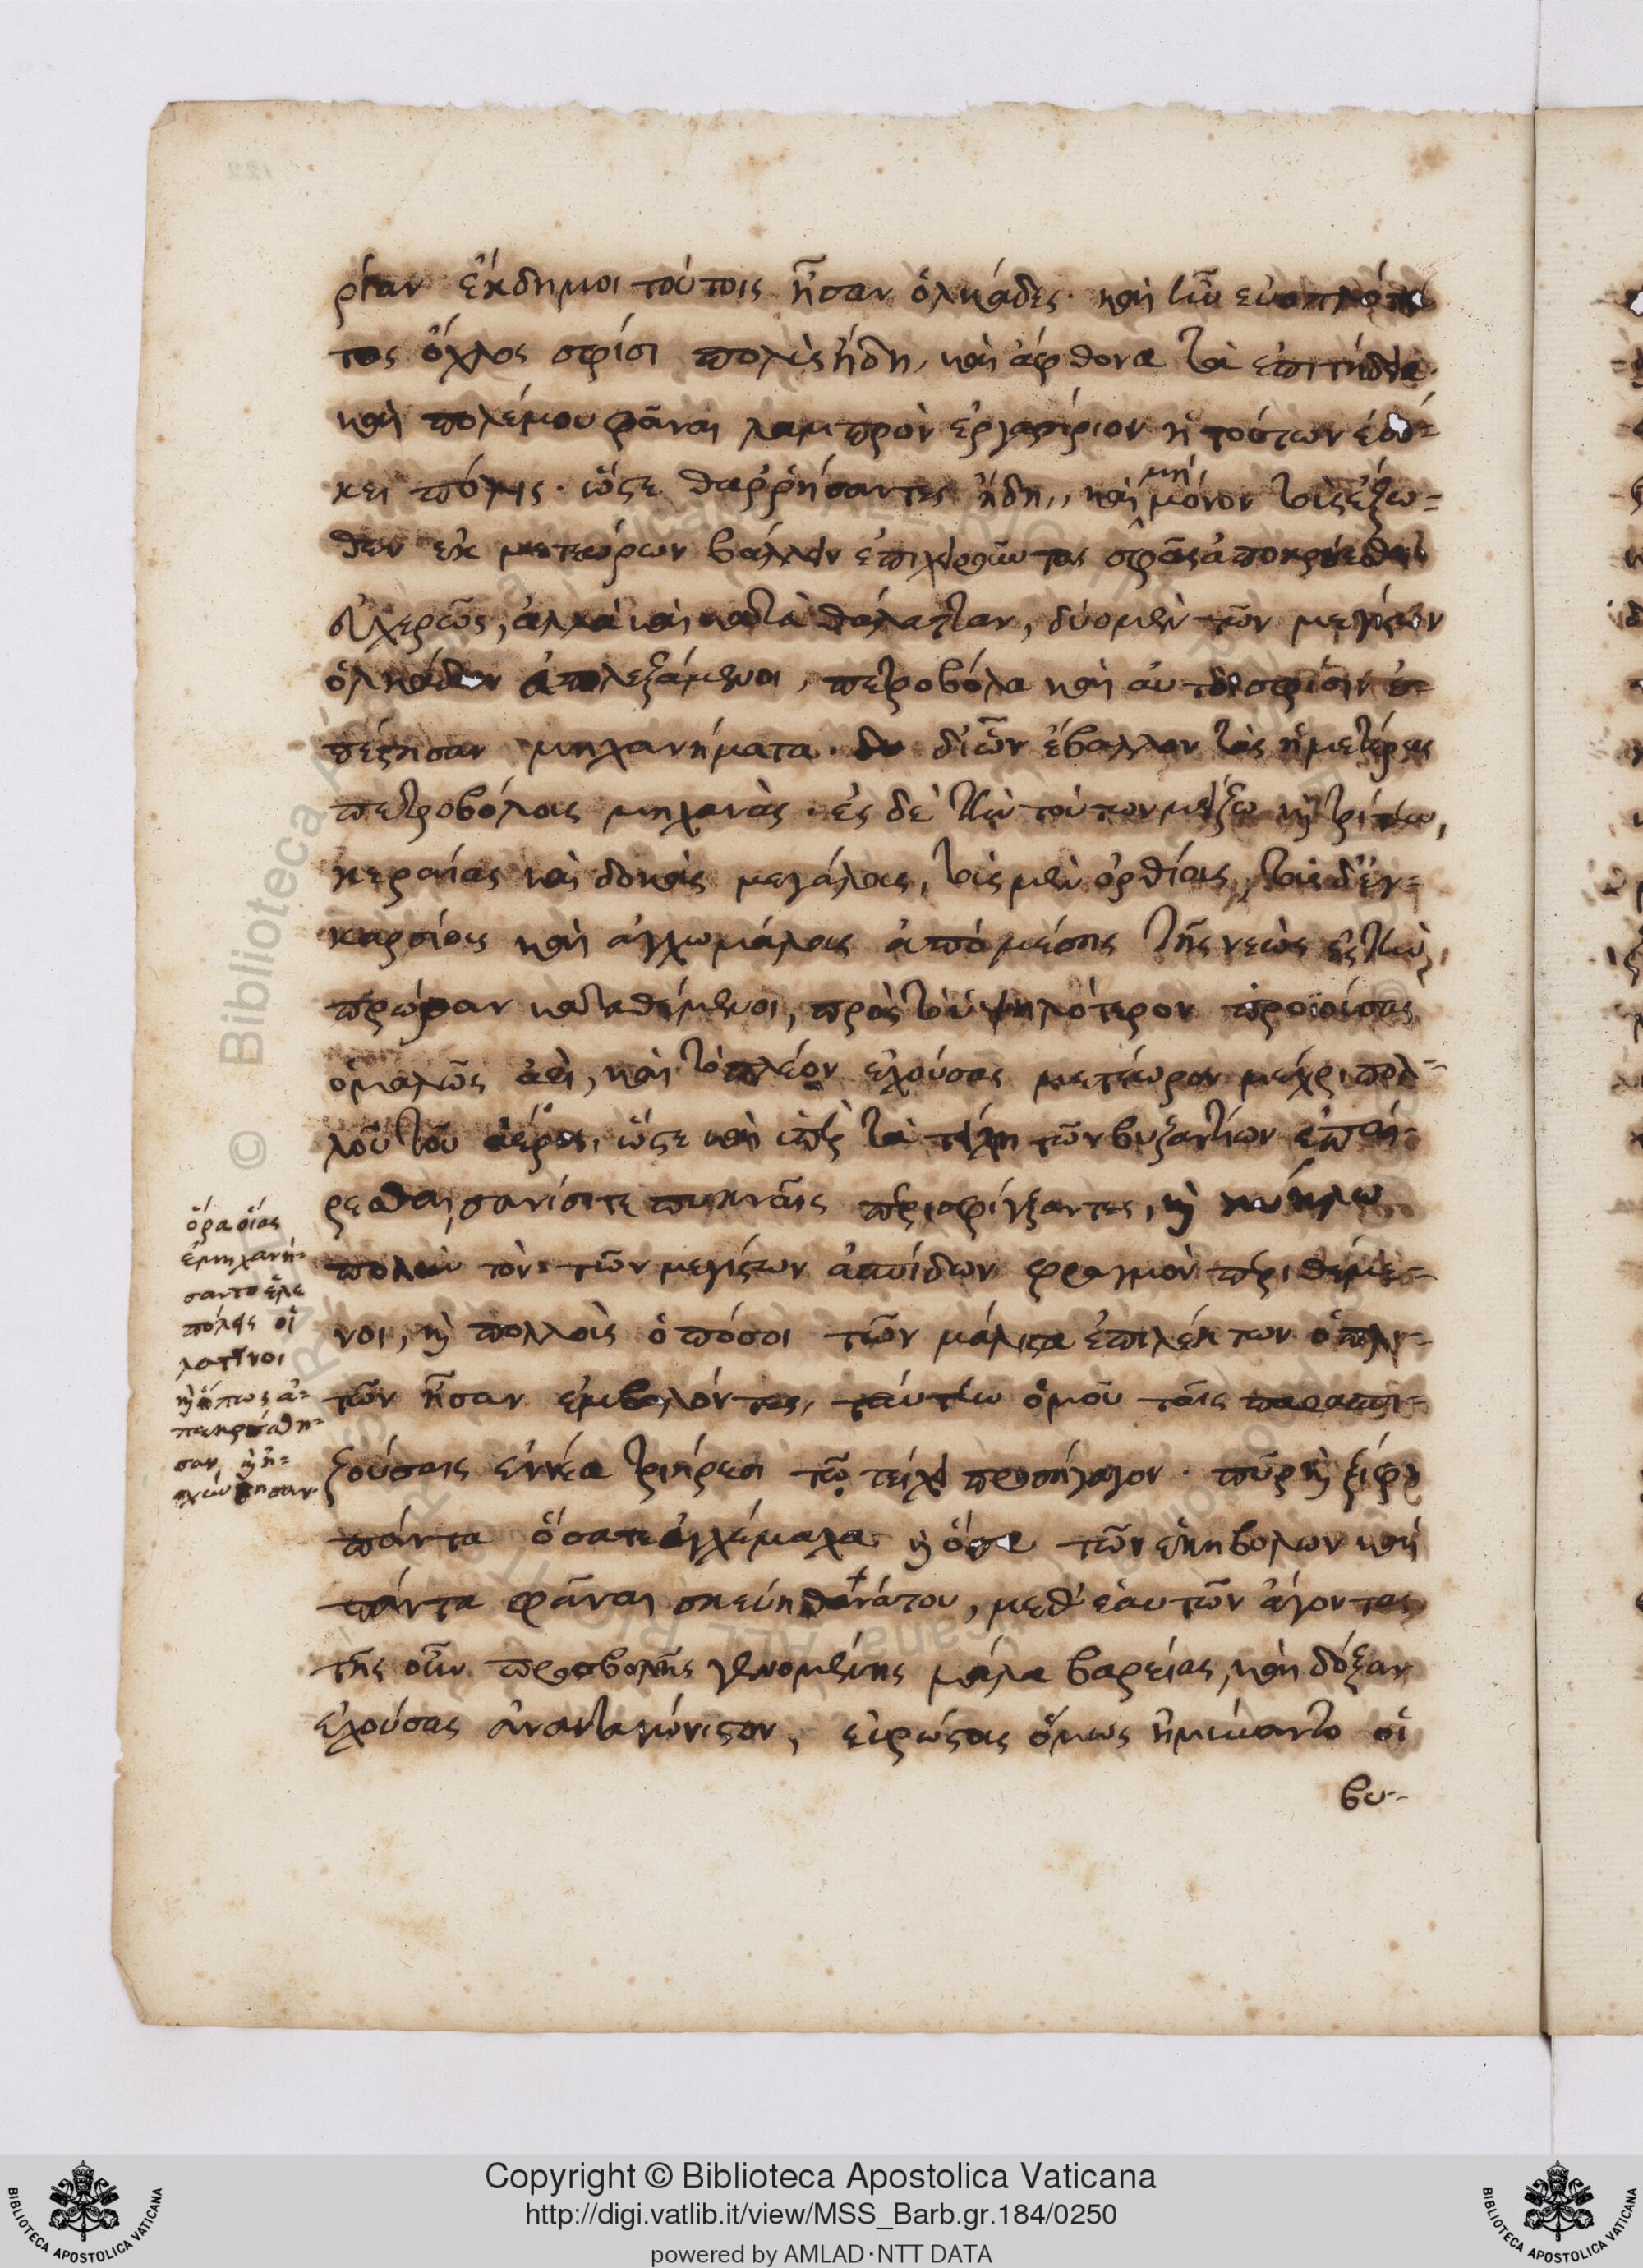 ρίαν ἔκδημοι τούτοις ἦσαν ὁλκάδες· καὶ ἦν
τος ὄχλος σφίσι πολὺς ἤδη, καὶ ἄφθονα τὰ ἐπιτήδεια·
καὶ πολέμου φᾶναι λαμπρὸν ἐργαστήριον ἡ τούτων ἐδό-
κει πόλις· ὥστε θαρρήσαντες ἤδη, καὶ μὴ μόνον τοὺς ἔξω-
θεν ἐκ μετεώρων βάλλειν ἐπιχειροῦντας σφᾶς ἀποκρούεσθαι
εὐχερῶς, ἀλλὰ καὶ κατὰ θάλατταν, δύο μὲν τῶν μεγίστων
ὁλκάδων ἀπολεξάμενοι, πετροβόλα καὶ αὐτοὶ σφίσιν ἐ-
πέστησαν μηχανήματα· δι' ὧν ἔβαλλον τὰς ἡμετέρας
πετροβόλους μηχανάς· ἐς δὲ τὴν τούτων μείζω καὶ τρίτην,
κεραίας καὶ δοκοὺς μεγάλας, τὰς μὲν ὀρθίας, τὰς δ' ἐγ-
καρσίους καὶ ἀγχωμάλους ἀπὸ μέσης τῆς νεὼς ἐς τὴν
πρώραν καταθέμενοι, πρὸς τὸ ὑψηλότερον προϊούσας
ὁμαλῶς ἀεὶ, καὶ τὸ πλέον ἐχούσας μετέωρον μέχρι πολ-
λοῦ τοῦ ἀέρος, ὥστε καὶ ὑπὲρ τὰ τείχη τῶν βυζαντίων ἐπαί-
ρεσθαι, σανίσι τε πυκναῖς περισφίγξαντες, καὶ κύκλω
πολὺν τὸν τῶν μεγίστων ἀσπίδων φραγμὸν περιθέμε-
νοι, καὶ πολλοὺς ὁπόσοι τῶν μάλιστα ἐπιλέκτων ὁπλι-
τῶν ἦσαν ἐμβαλόντες, ταύτην ὁμοῦ ταῖς παραπι-
ζούσαις ἐννέα τριήρεσι τῷ τείχει προσήγαγον· πῦρ καὶ ξίφη
πάντα ὅσα τε ἀγχέμαχα καὶ ὅσα τῶν ἑκηβόλων καὶ
πάντα φᾶναι σκεύη θανάτου, μεθ' ἑαυτῶν ἄγοντας
τῆς οὖν προσβολῆς γενομένης μάλα βαρείας, καὶ δόξαν
ἐχούσας ἀνανταγώνιστον, εὐρώστως ὅμως ἠμύναντο οἱ
βυ-
ὅρα οἵας
ἐμηχανή-
σαντο ἑλε
πόλεις οἱ
λατῖνοι
καὶ ὅπως ἀ-
πεκρούσθη-
σαν, καὶ ᾐ-
σχύνθησαν·
Copyright © Biblioteca Apostolica Vaticana
http://digi.vatlib.it/view/MSS_Barb.gr.184/0250
powered by AMLAD·NTT DATA
BIBLIOTECA APOSTOLICA VATICANA
BIBLIOTECA APOSTOLICA VATICANA